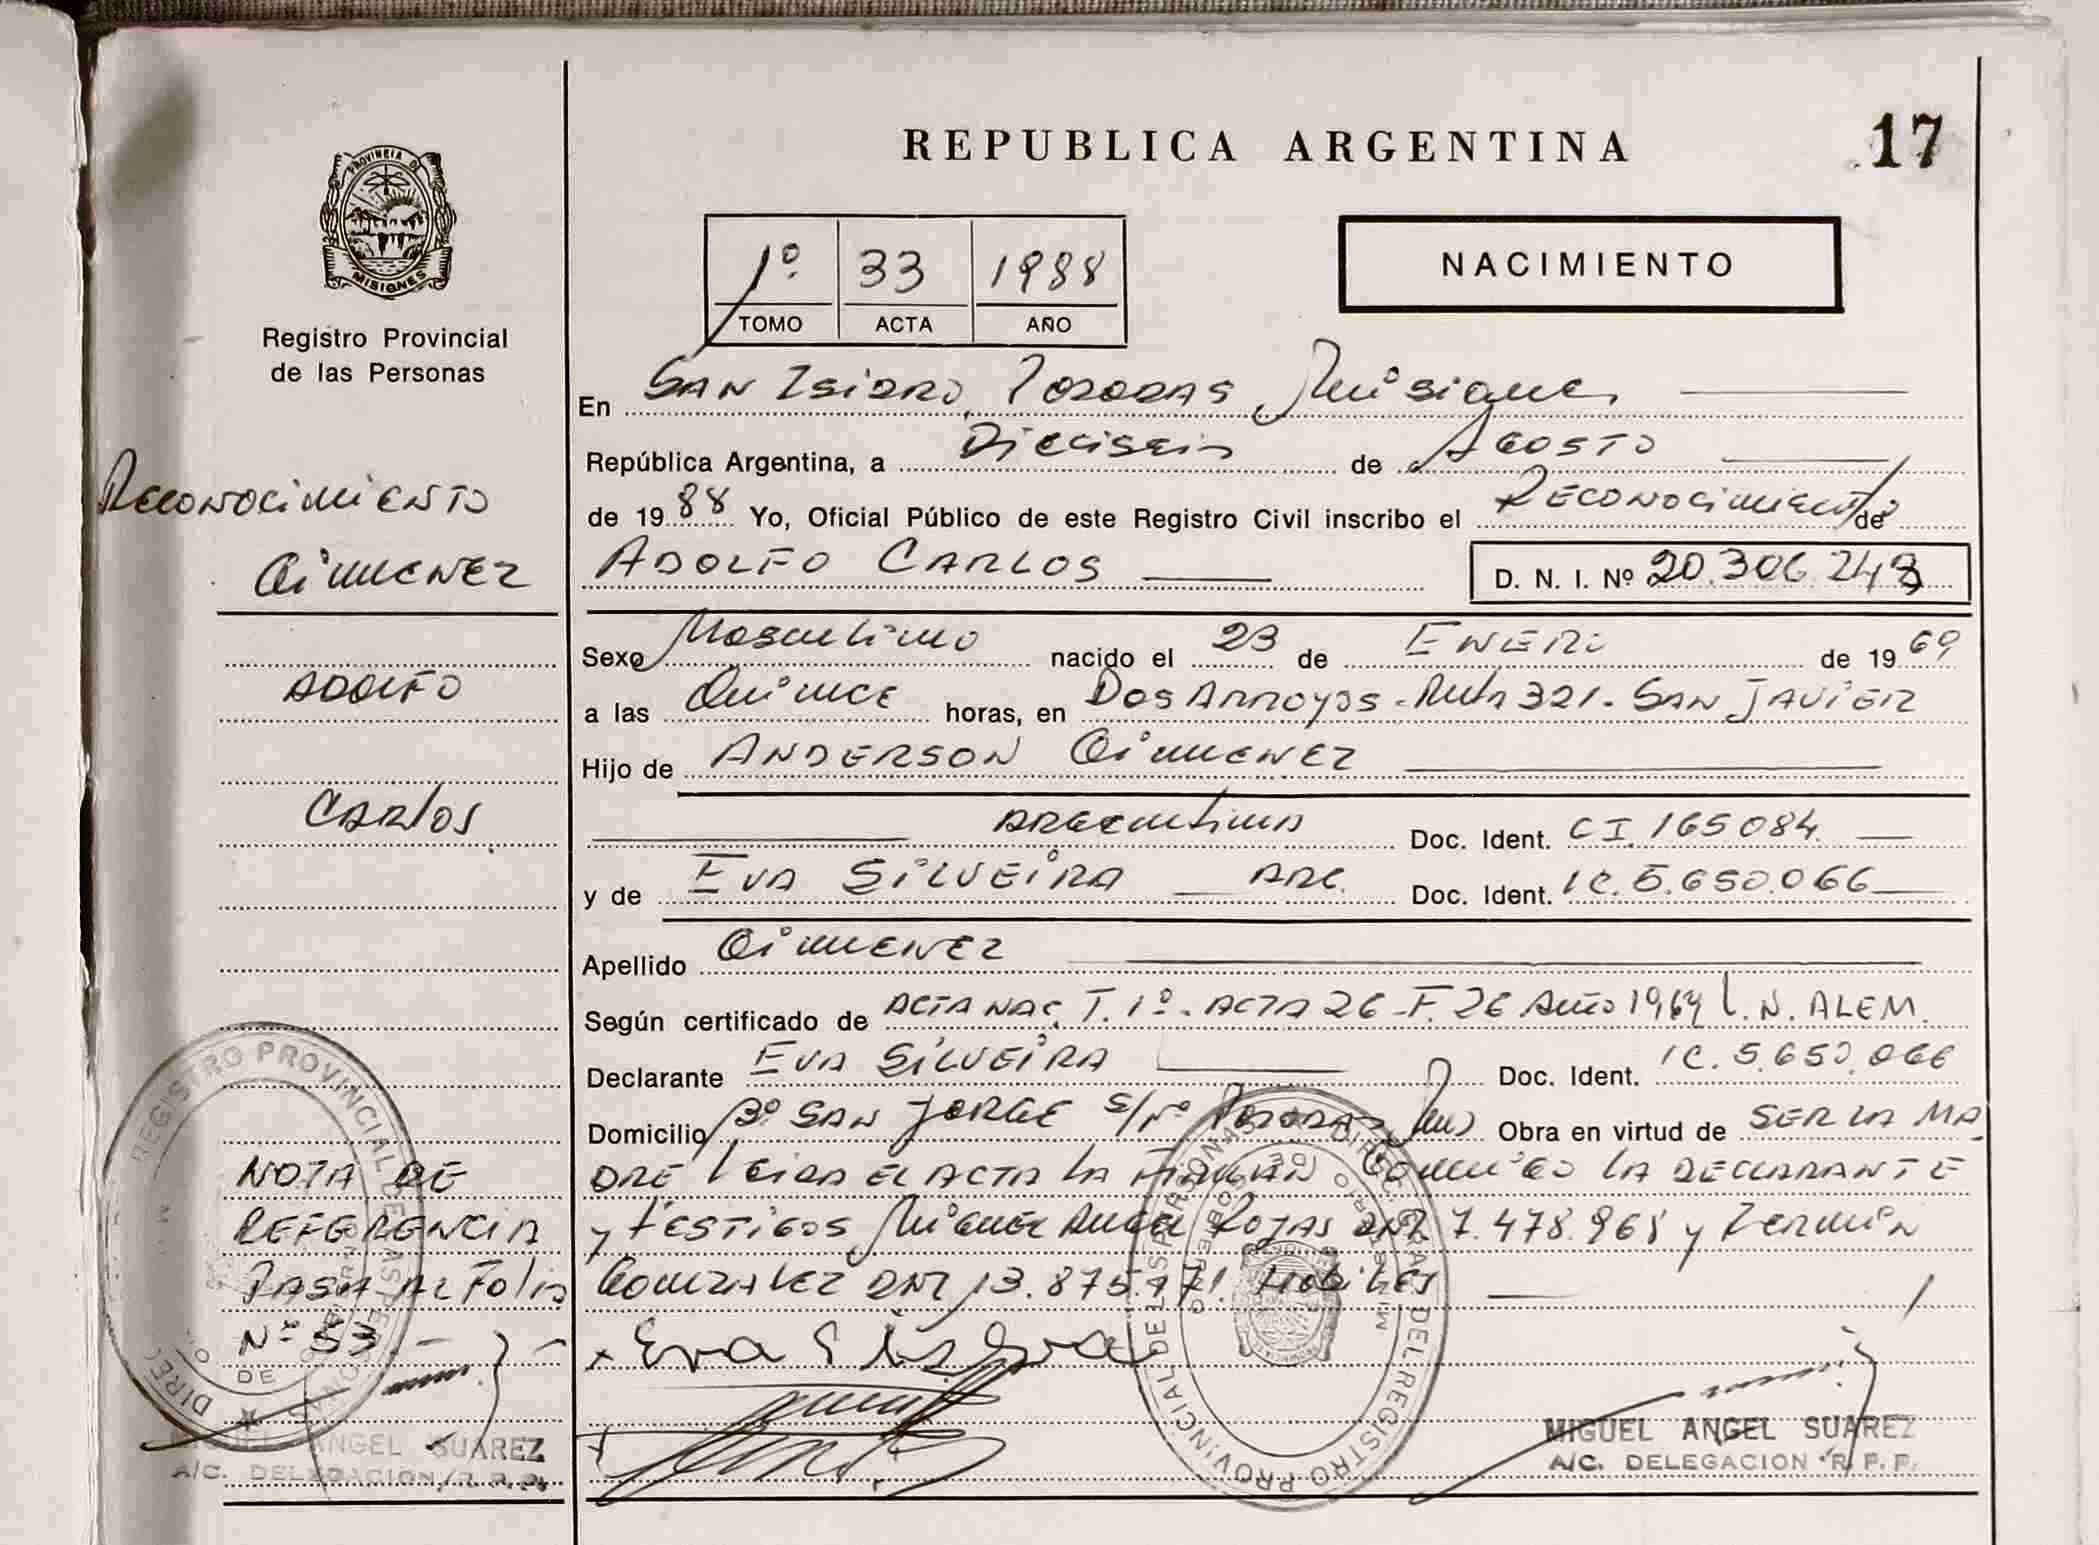 REPUBLICA ARGENTINA
17
PROVINCIA DE MISIONES
Registro Provincial
de las Personas
1º 33 1988
TOMO ACTA AÑO
NACIMIENTO
En SAN ISIDRO, POSADAS, Misiones
República Argentina, a Dieciseis de AGOSTO
de 1988 Yo, Oficial Público de este Registro Civil inscribo el RECONOCIMIENTO de
ADOLFO CARLOS D. N. I. Nº 20.306.248
Sexo Masculino nacido el 23 de ENERO de 1969
a las Quince horas, en Dos Arroyos - Ruta 321. SAN JAVIER
Hijo de ANDERSON GiMENEZ
ARGENtiNA Doc. Ident. CI. 165084
y de EVA SiLVEiRA ARG. Doc. Ident. lC. 5.650.066
Apellido GiMENEZ
Según certificado de ACTA NAC. T. 1º - ACTA 26 - F. 26 Año 1969 L. N. ALEM.
Declarante EVA SiLVEiRA Doc. Ident. lC. 5.650.066
Domicilio Bº SAN JORGE S/Nº POSADAS Mns Obra en virtud de SER LA MA
DRE LEIDA EL ACTA LA FIRMAN CONMIGO LA DECLARANTE
y TESTIGOS MiGUEL ANGEL ROJAS DNI 7.478.968 y FERMIN
GONZALEZ DNI 13.875.171. HabiLES
Eva
MIGUEL ANGEL SUAREZ
A/C. DELEGACION R. P. P.
RECONOCIMIENTO
GiMENEZ
ADOLFO
CARlOS
NOTA DE
REFERENCIA
PASA AL FOLIO
Nº 53
MIGUEL ANGEL SUAREZ
A/C. DELEGACION R. P. P.
REGISTRO PROVINCIAL DE LAS PERSONAS
DIREC. GRAL. DEL REGISTRO PROVINCIAL DE LAS PERSONAS
MINISTERIO DE GOBIERNO